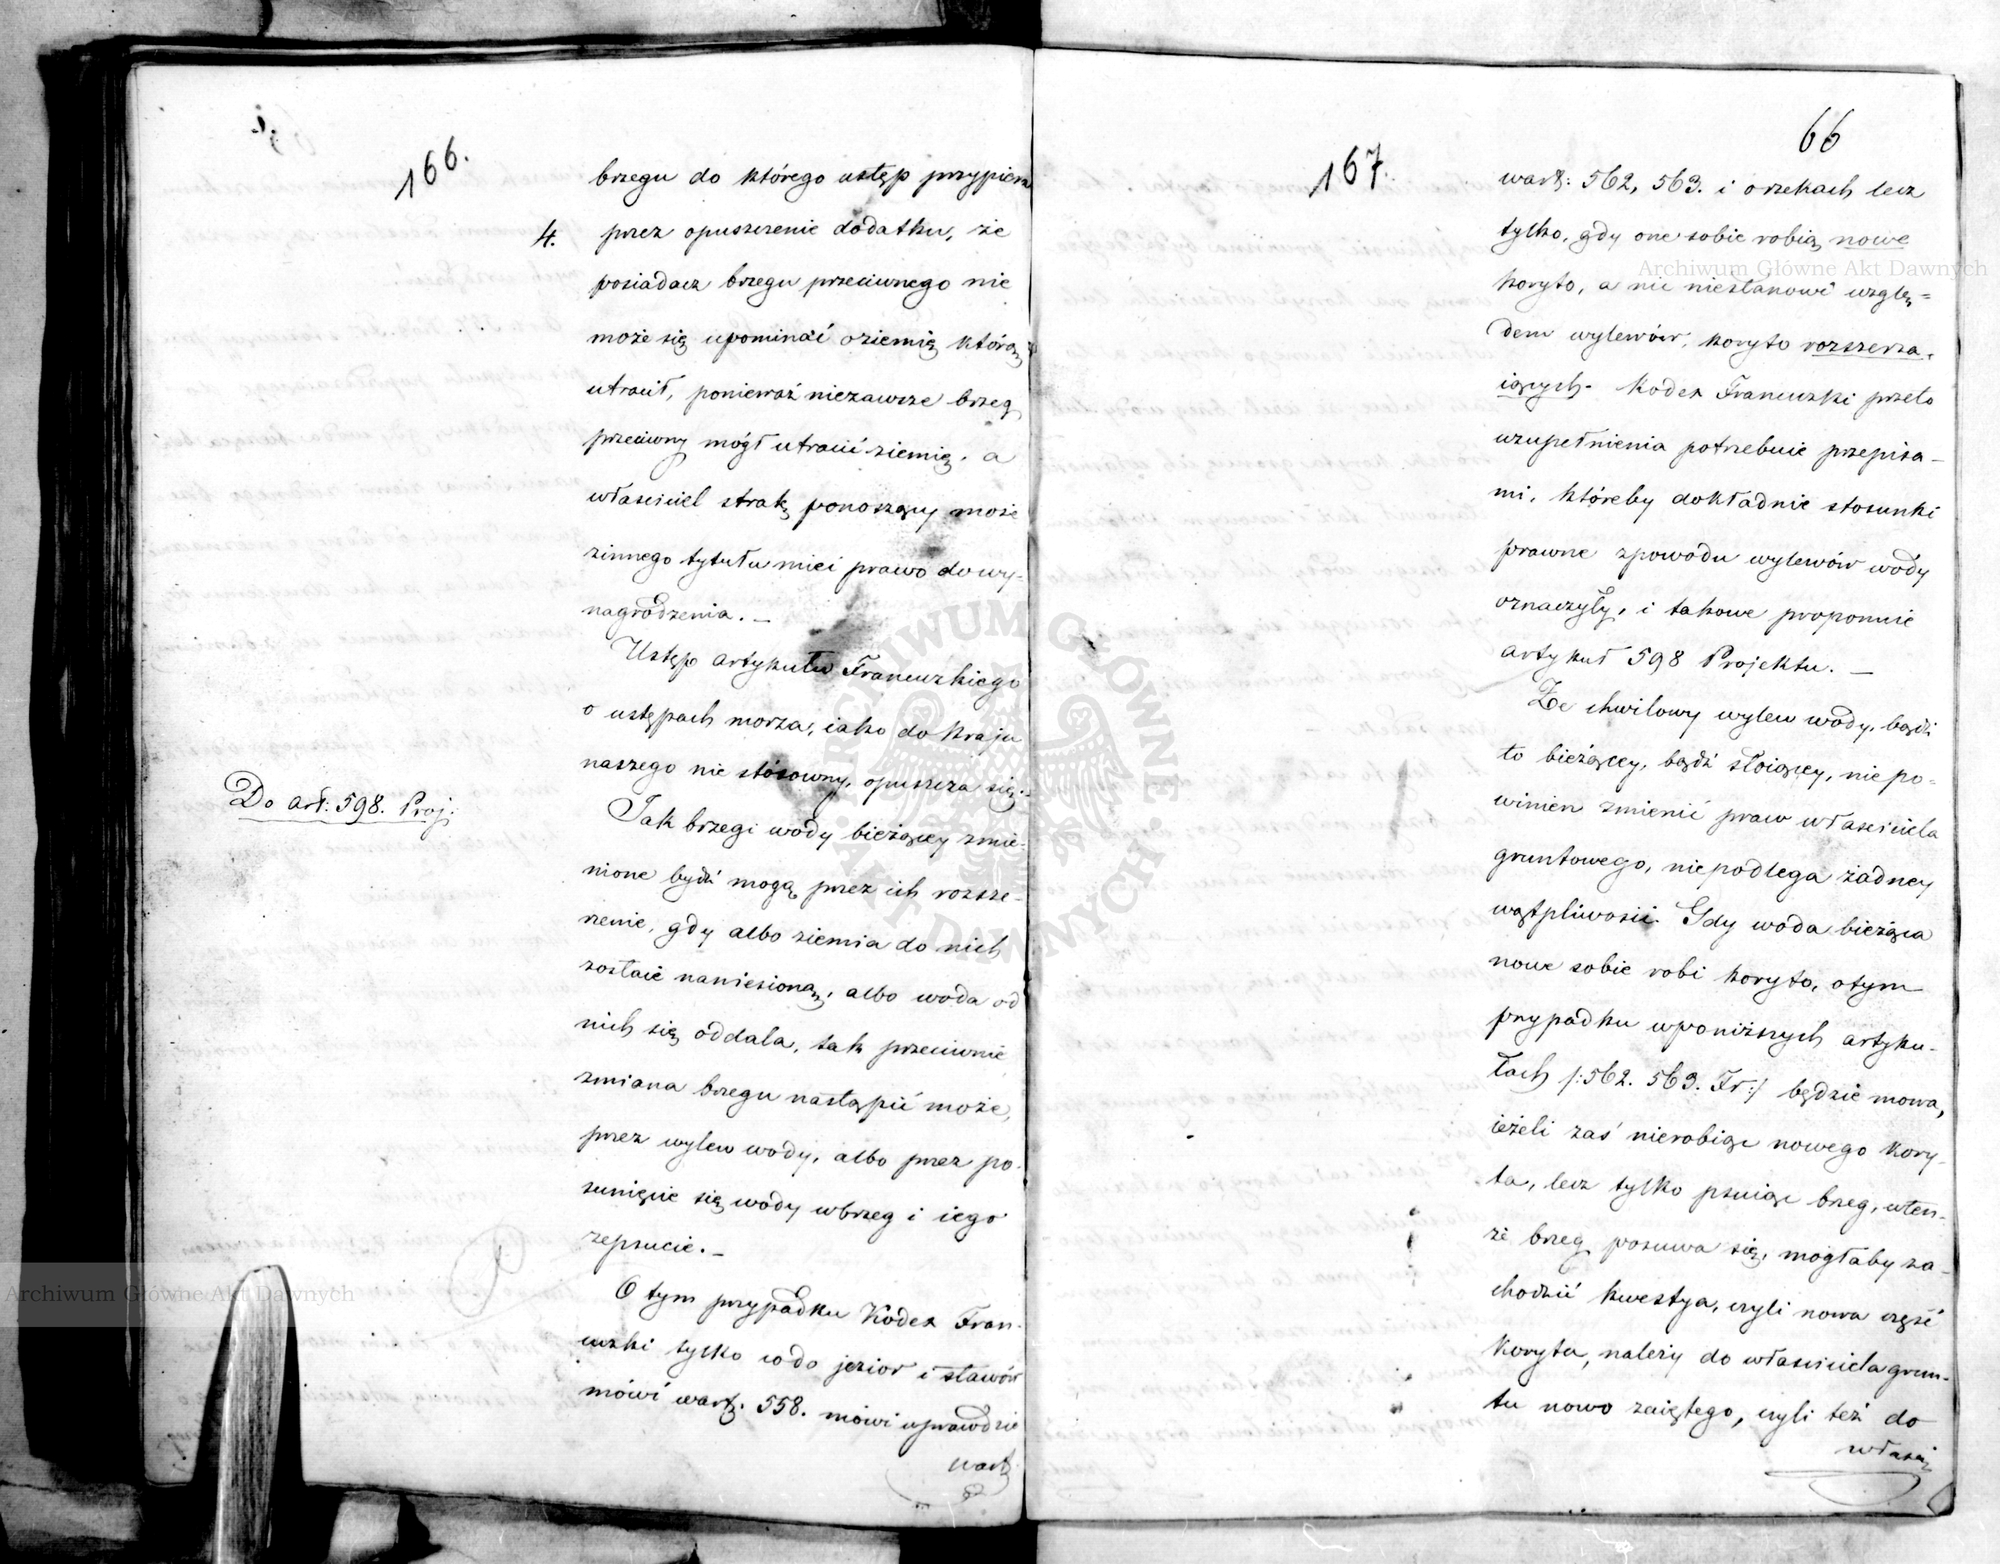 166.
brzegu do którego ustęp przypiera
4. przez opuszczenie dodatku, że
posiadacz brzegu przeciwnego nie
może się upominać oziemię którą
utracił, ponieważ niezawsze brzeg
przeciwny mógł utracić ziemię, a
właściciel stratę ponoszący może
zinnego tytułu mieć prawo do wy-
nagrodzenia. –
Ustęp artykułu Francuzkiego
o ustępach morza, iako do kraju
naszego nie stósowny, opuszcza się. –
Do art: 598. Proj:
Jak brzegi wody bieżącey zmie-
nione bydź mogą przez ich rozsze-
rzenie, gdy albo ziemia do nich
zostaie naniesioną, albo woda od
nich się oddala, tak przeciwnie
zmiana brzegu nastąpić może,
przez wylew wody, albo przez po-
sunięcie się wody wbrzeg i iego
zepsucie. –
O tym przypadku Kodex Fran-
cuzki tylko codo jezior i stawów
mówi wart. 558. mówi wprawdzie
wart:
66
167.
wart: 562, 563. i orzekach lecz
tylko, gdy one sobie robią nowe
koryto, a nic niestanowi wzglę-
dem wylewów, koryto rozszerza-
iących. Kodex Francuzki przeto
uzupełnienia potrzebuie przepisa-
mi, któreby dokładnie stosunki
prawne zpowodu wylewów wody
oznaczyły, i takowe proponuie
artykuł 598 Projektu. –
Że chwilowy wylew wody, bądź
to bieżącey, bądź stoiącey, niepo-
winien zmienić praw właściciela
gruntowego, niepodlega żadney
wątpliwości. Gdy woda bieżąca
nowe sobie robi koryto, otym
przypadku wponiższych artyku-
łach /:562. 563. Fr:/ będzie mowa,
ieżeli zaś nierobiąc nowego kory-
ta, lecz tylko psuiąc brzeg, wten-
że brzeg posuwa się, mogłaby za-
chodzić kwestya, czyli nowa część
koryta, należy do właściciela grun-
tu nowo zaiętego, czyli też do
właści
Archiwum Główne Akt Dawnych
Archiwum Główne Akt Dawnych
ARCHIWUM GŁÓWNE AKT DAWNYCH